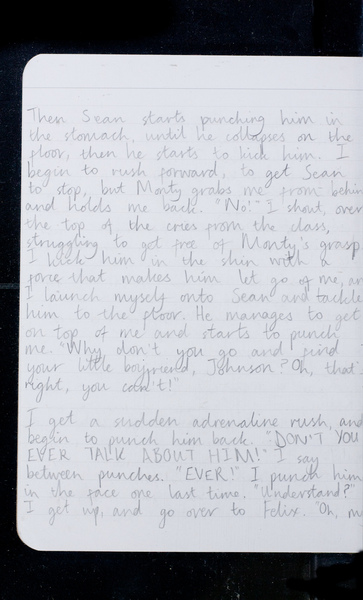 Then Sean starts punching him in
the stomach, until he collapses on the
floor, then he starts to kick him. I
begin to rush forward, to get Sean
to stop, but Monty grabs me from behin
and holds me back. "No!" I shout, over
the top of the cries from the class,
struggling to get free of Monty's grasp.
I kick him in the shin with a
force that makes him let go of me, an
I launch myself onto Sean and tackle
him to the floor. He manages to get
on top of me and starts to punch
me. "Why don't you go and find
your little boyfriend, Johnson? Oh, that
right, you can't!"
I get a sudden adrenaline rush, and
begin to punch him back. "DON'T YOU
EVER TALK ABOUT HIM!" I say
between punches. "EVER!" I punch him
in the face one last time. "Understand?"
I get up, and go over to Felix. "Oh, m